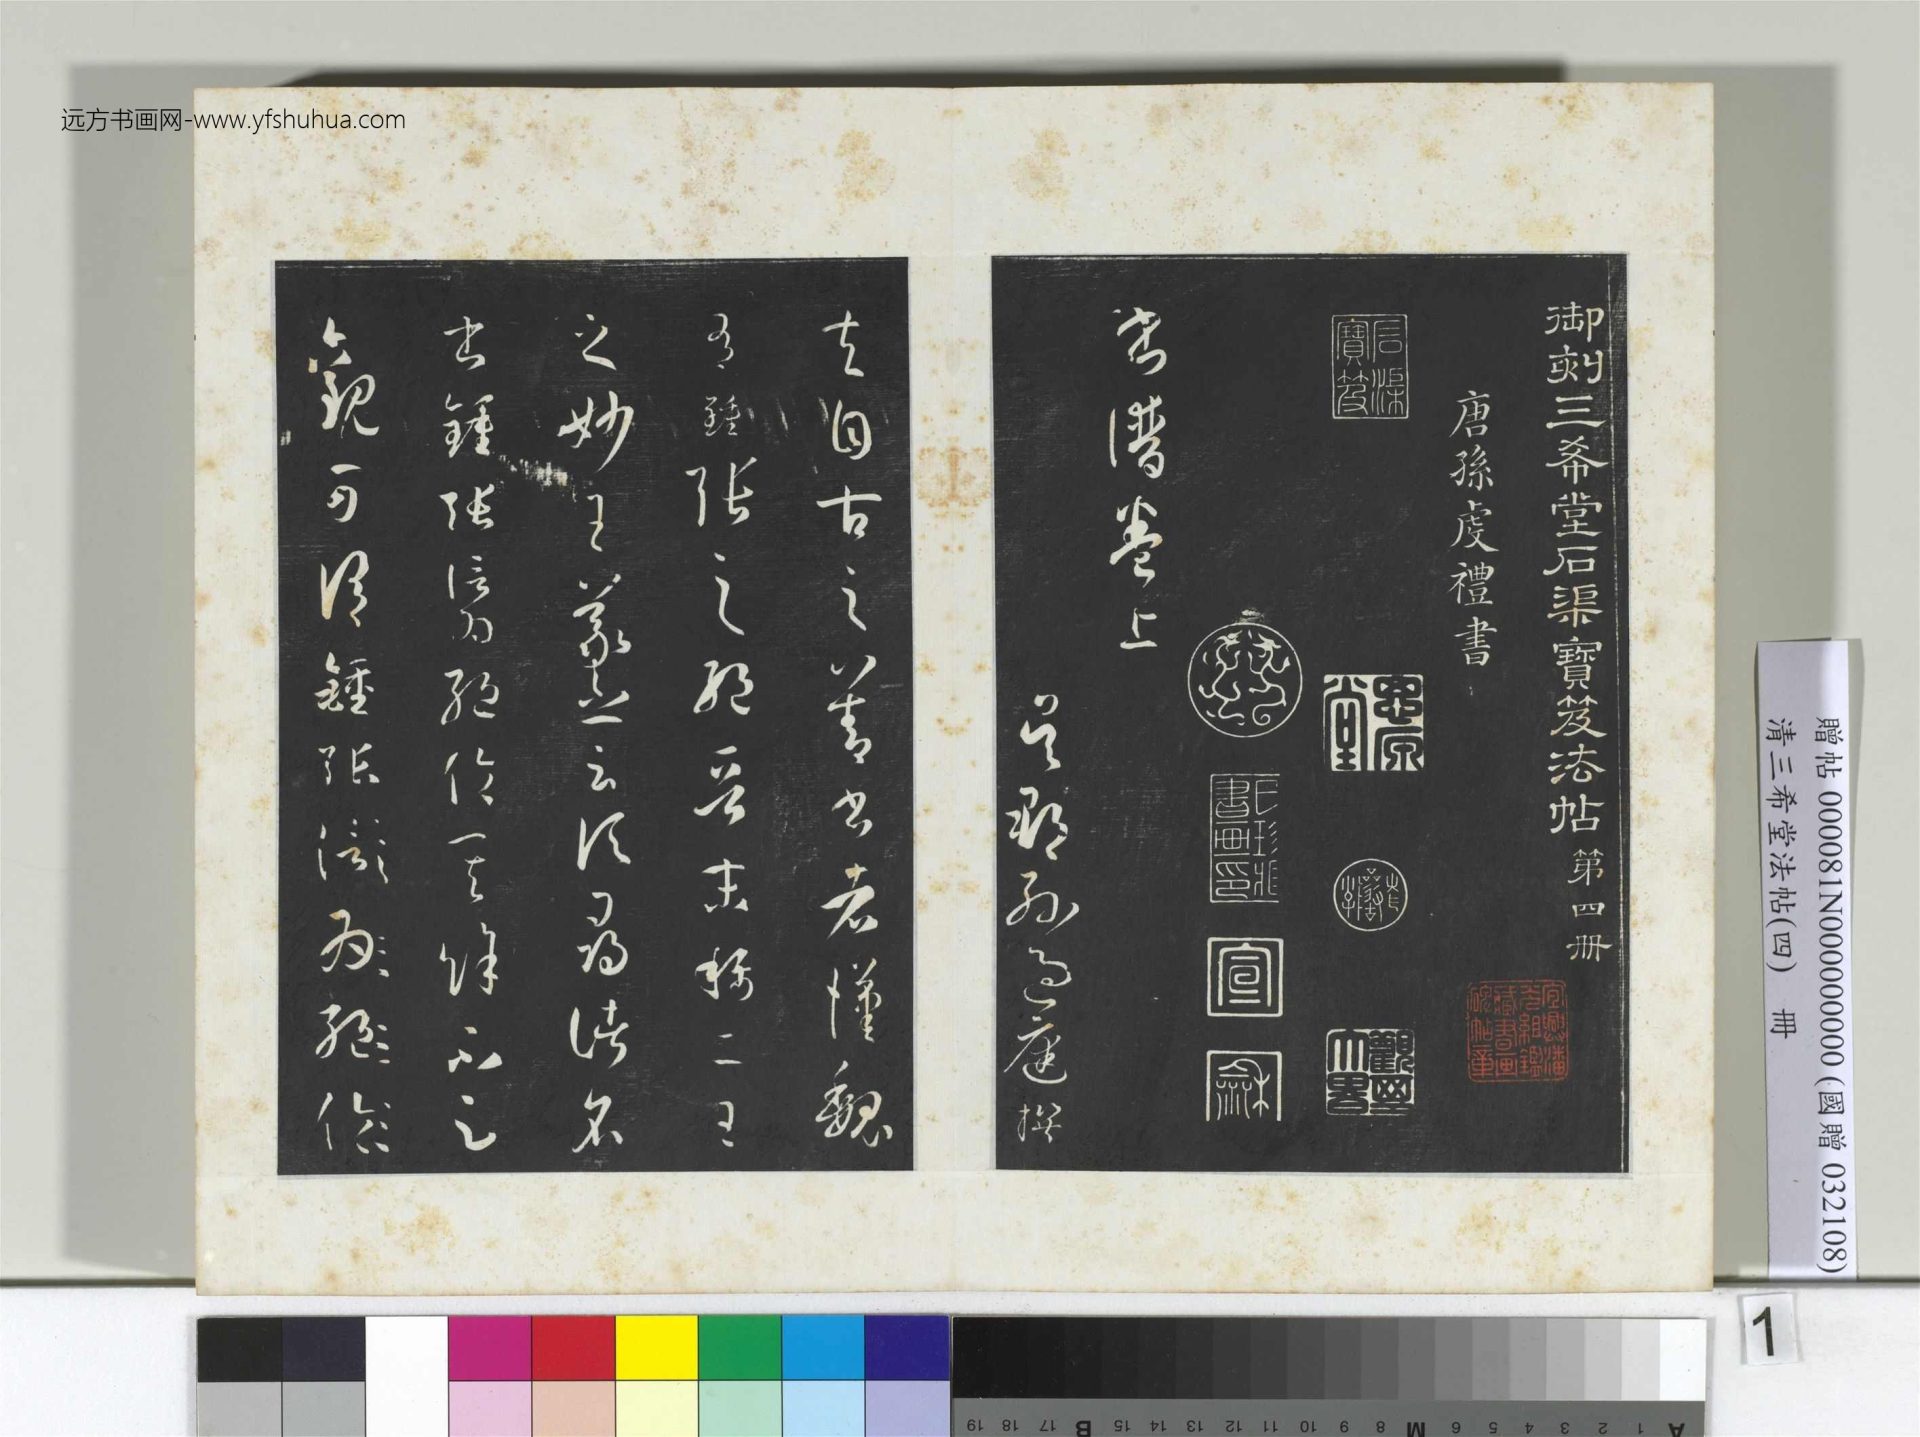 远方书画网-www.yfshuhua.com
御刻三希堂石渠寶笈法帖 第四冊
唐孫虔禮書
石渠寶笈
宣
龢
書譜卷上
吳郡孫過庭撰
夫自古之善書者漢魏
有鍾張之絕晉末稱二王
之妙王羲之云頃尋諸名
書鍾張信為絕倫其餘不足
觀可謂鍾張云沒而羲獻繼
贈帖 000081N000000000 (國贈 032108)
清三希堂法帖(四) 冊
1
19 18 17 B 15 14 13 12 11 10 9 8 M 6 5 4 3 2 1 A